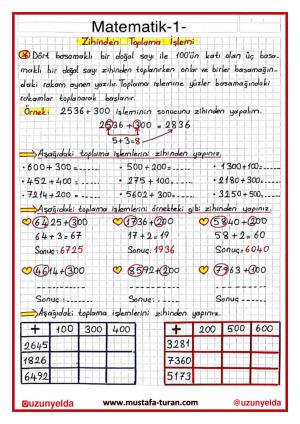 Matematik-1-
Zihinden Toplama İşlemi
Dört basamaklı bir doğal sayı ile 100'ün katı olan üç basa-
maklı bir doğal sayı zihinden toplanırken onlar ve birler basamağın-
daki rakam aynen yazılır. Toplama işlemine yüzler basamağındaki
rakamlar toplanarak başlanır.
Örnek: 2536 + 300 işleminin sonucunu zihinden yapalım.
2536 + 300 = 2836
5+3=8
Aşağıdaki toplama işlemlerini zihinden yapınız.
• 600 + 300 = ........ • 500 + 200 = ........ • 1300 + 100 = ........
• 452 + 400 = ........ • 275 + 100 = ........ • 2180 + 300 = ........
• 7214 + 200 = ........ • 5602 + 300 = ........ • 3250 + 500 = ........
Aşağıdaki toplama işlemlerini örnekteki gibi zihinden yapınız.
6425 + 300 1736 + 200 5840 + 200
64 + 3 = 67 17 + 2 = 19 58 + 2 = 60
Sonuç: 6725 Sonuç: 1936 Sonuç: 6040
4614 + 300 8592 + 200 7963 + 300
Sonuç: Sonuç: Sonuç:
Aşağıdaki toplama işlemlerini zihinden yapınız.
+ 100 300 400 + 200 500 600
2645 3281
1826 7360
6492 5173
@uzunyelda www.mustafa-turan.com @uzunyelda